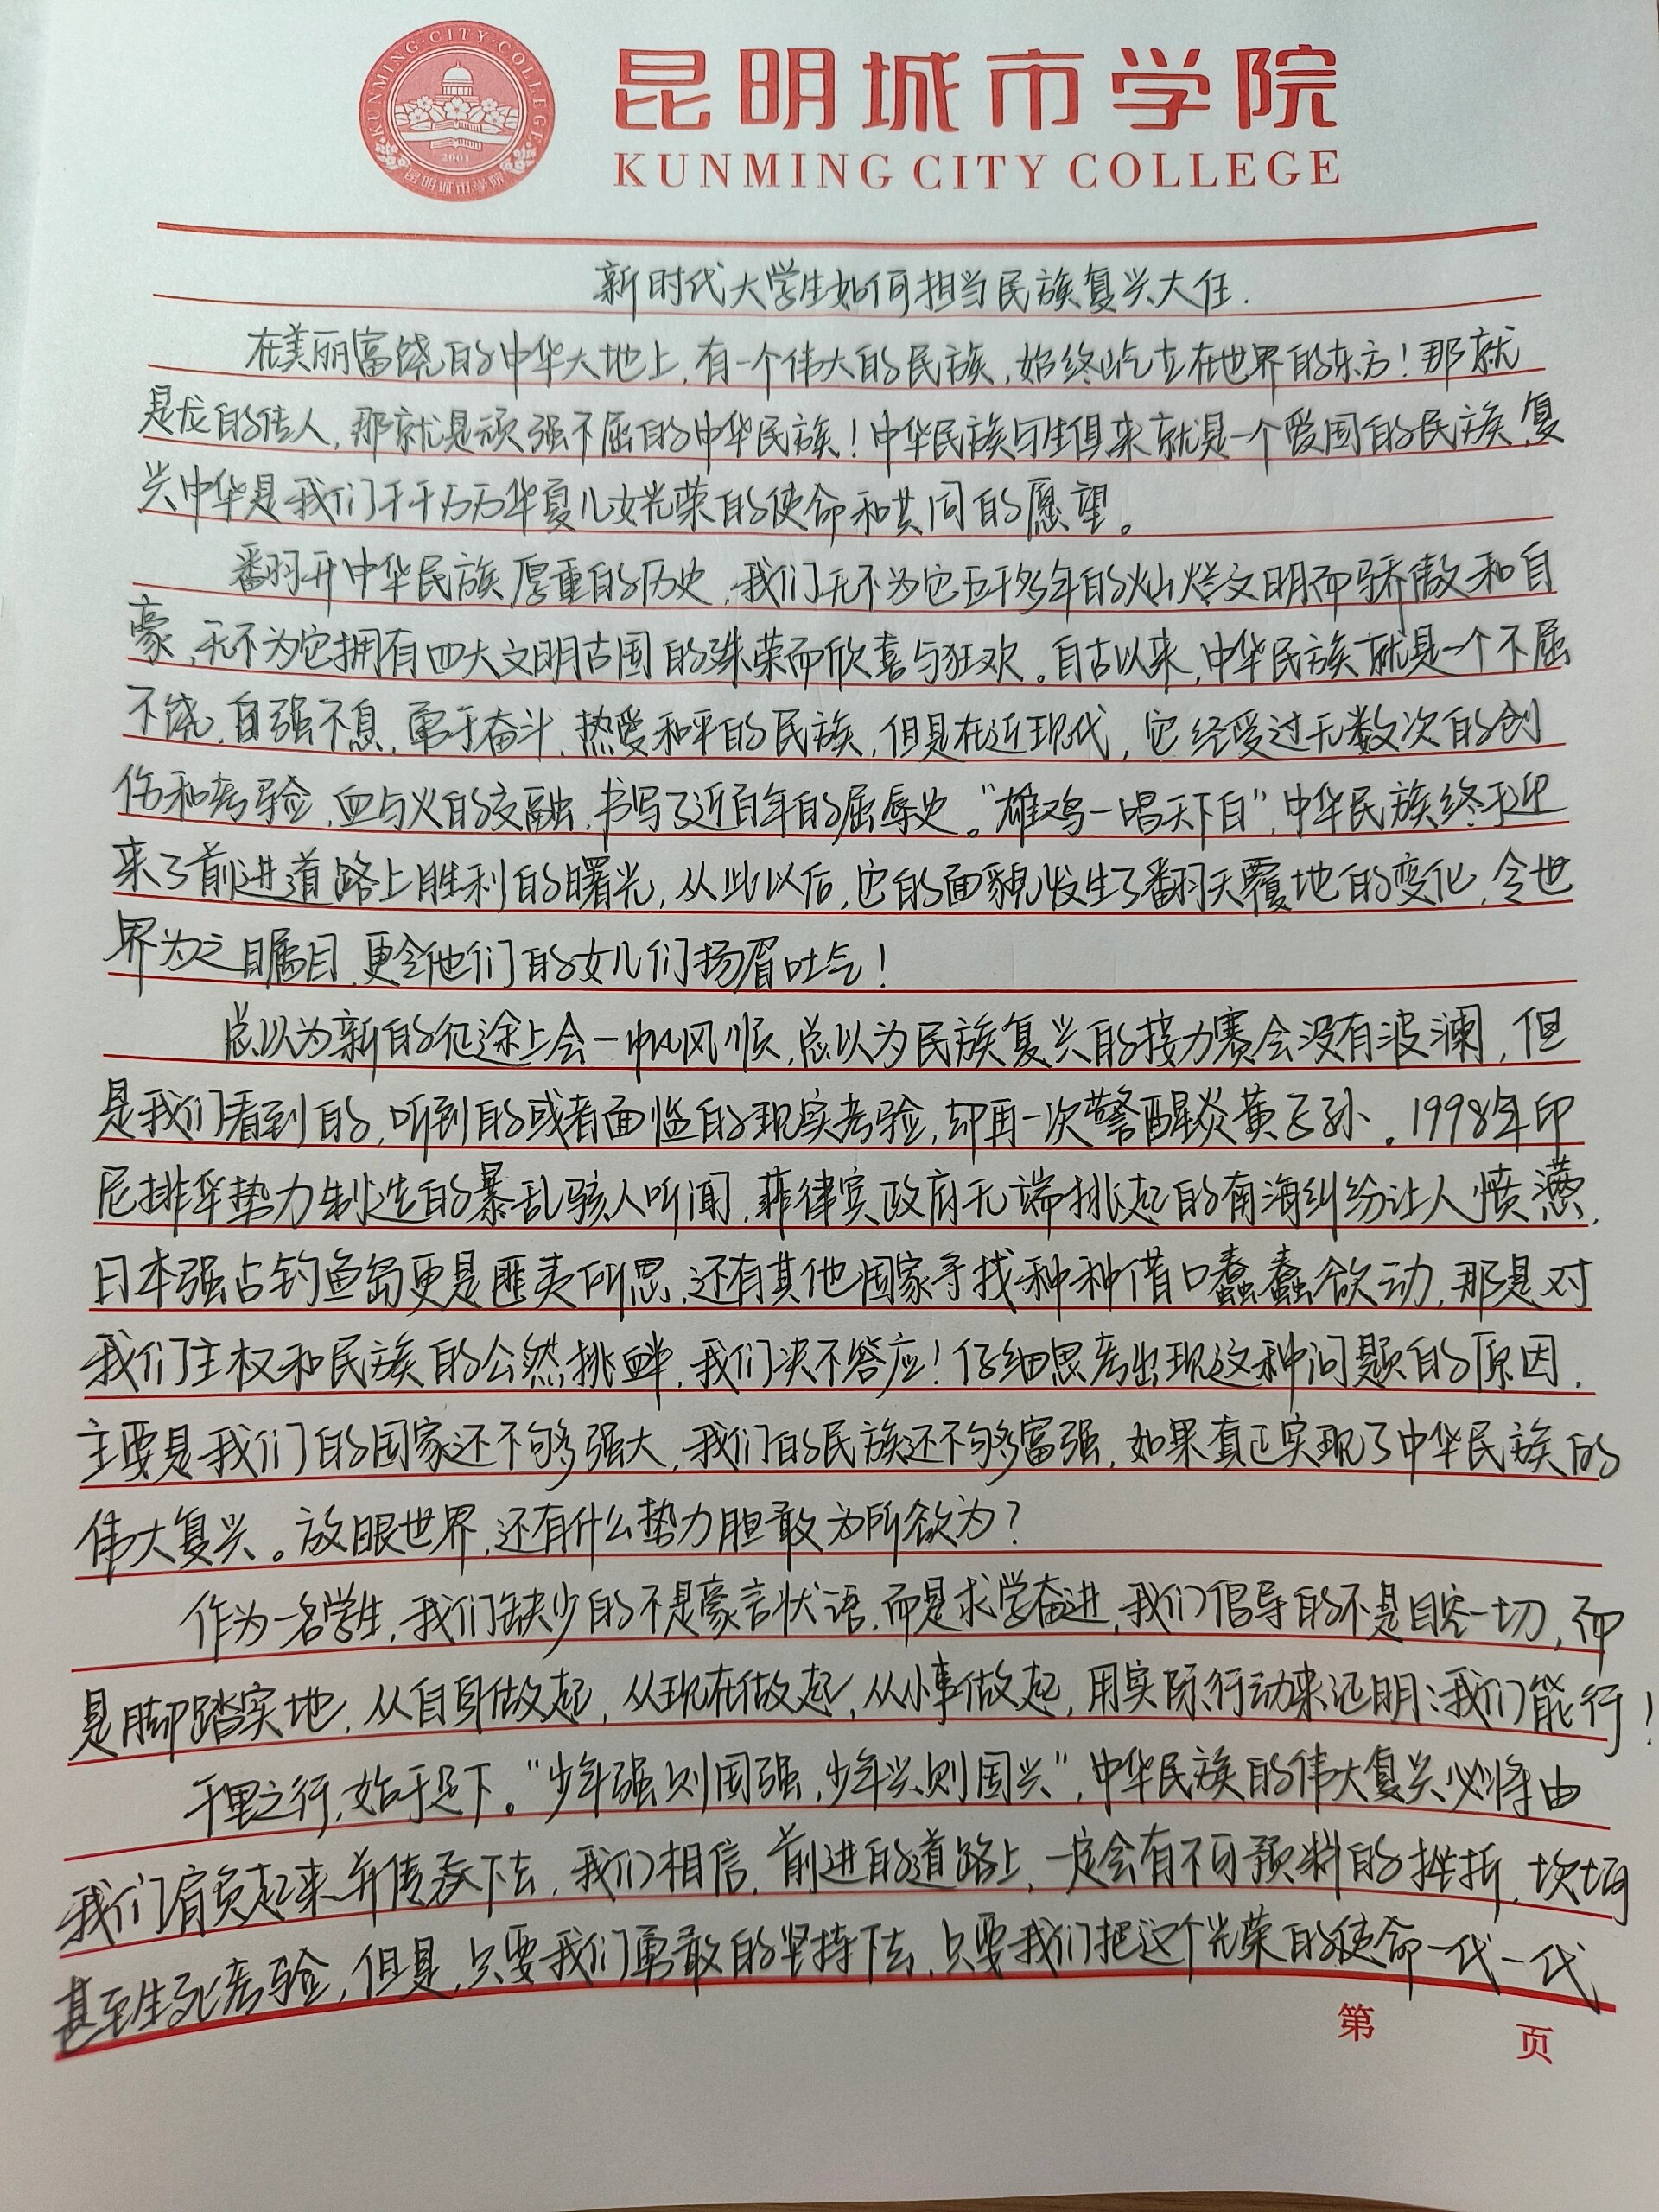 KUNMING·CITY·COLLEGE
2001
昆明城市学院
昆明城市学院
KUNMING CITY COLLEGE
新时代大学生如何担当民族复兴大任.
在美丽富饶的中华大地上,有一个伟大的民族,始终屹立在世界的东方!那就
是龙的传人,那就是顽强不屈的中华民族!中华民族与生俱来就是一个爱国的民族,复
兴中华是我们千千万万华夏儿女光荣的使命和共同的愿望。
翻开中华民族厚重的历史,我们无不为它五千多年的灿烂文明而骄傲和自
豪,无不为它拥有四大文明古国的殊荣而欣喜与狂欢。自古以来,中华民族就是一个不屈
不饶,自强不息,勇于奋斗,热爱和平的民族,但是在近现代,它经受过无数次的创
伤和考验,血与火的交融,书写了近百年的屈辱史。"雄鸡一唱天下白",中华民族终于迎
来了前进道路上胜利的曙光,从此以后,它的面貌发生了翻天覆地的变化,令世
界为之瞩目,更令他们的女儿们扬眉吐气!
总以为新的征途上会一帆风顺,总以为民族复兴的接力赛会没有波澜,但
是我们看到的,听到的或者面临的现实考验,却再一次警醒炎黄子孙。1998年印
尼排华势力制造的暴乱骇人听闻,菲律宾政府无端挑起的南海纠纷让人愤懑,
日本强占钓鱼岛更是匪夷所思,还有其他国家寻找种种借口蠢蠢欲动,那是对
我们主权和民族的公然挑衅,我们决不答应!仔细思考出现这种问题的原因,
主要是我们的国家还不够强大,我们的民族还不够富强,如果真正实现了中华民族的
伟大复兴。放眼世界,还有什么势力胆敢为所欲为?
作为一名学生,我们缺少的不是豪言状语,而是求学奋进,我们倡导的不是目空一切,而
是脚踏实地,从自身做起,从现在做起,从小事做起,用实际行动来证明:我们能行!
千里之行,始于足下。"少年强则国强,少年兴则国兴",中华民族的伟大复兴必将由
我们肩负起来并传承下去,我们相信,前进的道路上,一定会有不可预料的挫折,坎坷
甚至生死考验,但是,只要我们勇敢的坚持下去,只要我们把这个光荣的使命一代一代
第 页